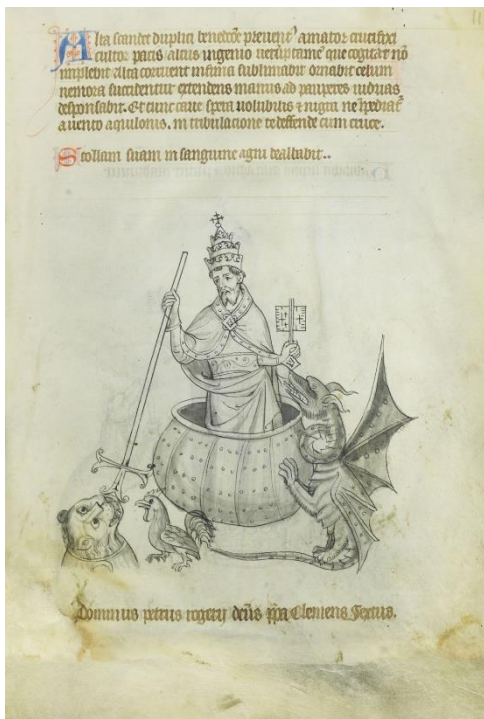 Alta scandet duplici benedcōe prevent' amator crucifixi
cultor pacis altus ingenio veruptamē que cogitat nō
implebit Alta corruent infima sublimabit ornabit celum
nemora succidentur extendens manus ad pauperes viduas
desponsabit. Et tunc cave volubilis & nigra ne
a vento aquilonis. in tribulacione te deffende cum cruce.
Stollam suam in sanguine agni dealbabit..
Dominus petrus rogerii Clemens Sextus.